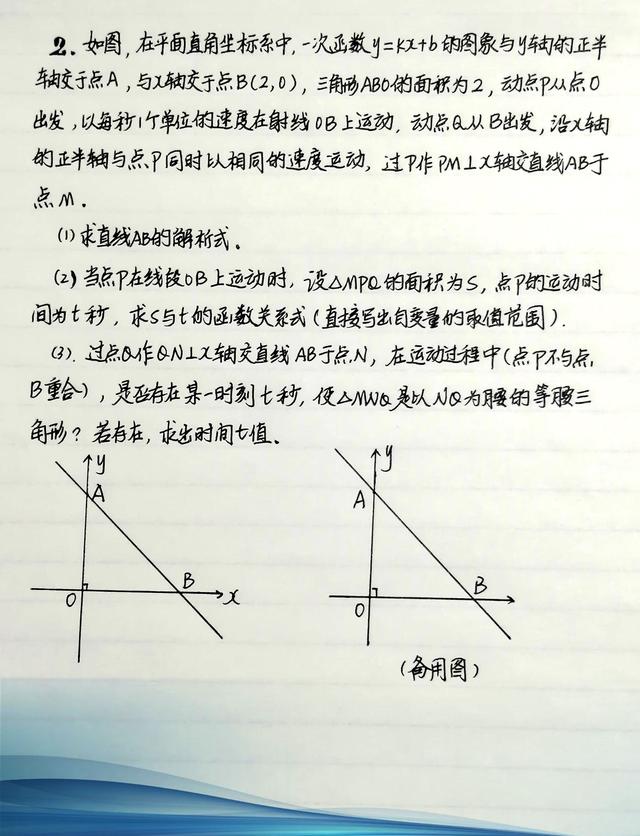 2. 如图, 在平面直角坐标系中, 一次函数y=kx+b的图象与y轴的正半
轴交于点A, 与x轴交于点B(2,0), 三角形ABO的面积为2, 动点P从点O
出发, 以每秒1个单位的速度在射线OB上运动, 动点Q从B出发, 沿x轴
的正半轴与点P同时以相同的速度运动, 过P作PM⊥x轴交直线AB于
点M.
(1) 求直线AB的解析式.
(2) 当点P在线段OB上运动时, 设△MPQ的面积为S, 点P的运动时
间为t秒, 求S与t的函数关系式(直接写出自变量的取值范围).
(3). 过点Q作QN⊥x轴交直线AB于点N, 在运动过程中(点P不与点
B重合), 是否存在某一时刻t秒, 使△MNQ是以NQ为腰的等腰三
角形? 若存在, 求出时间t值.
y
A
O
B
x
y
A
O
B
(备用图)